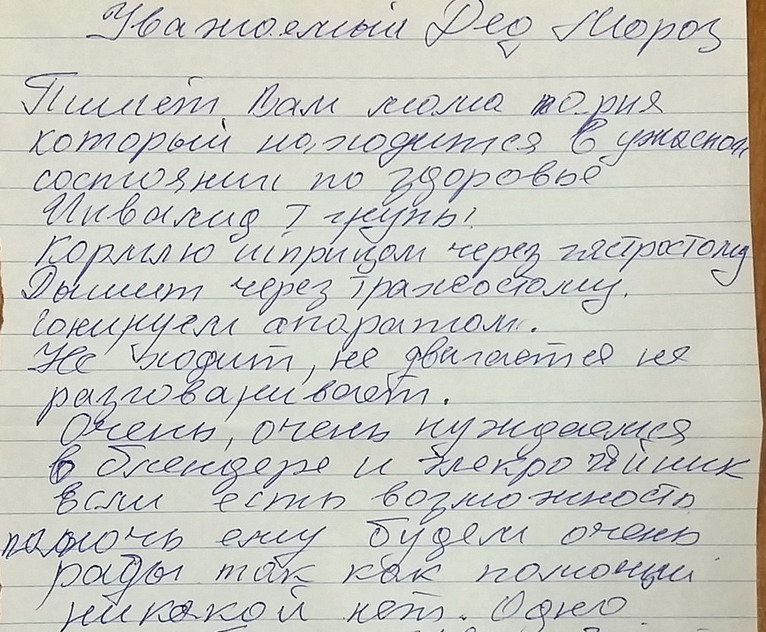 Уважаемый Дед Мороз
Пишет Вам мама парня
который находится в ужасном
состоянии по здоровье
Инвалид I групы.
Кормлю шприцом через гастростому
Дышит через Трахеостому.
Сонируем апоратом.
Не ходит, не двигается не
разговаривает.
Очень, очень нуждаемся
в блендере и Элекрочайник
Если есть возможность
помочь ему будем очень
рады так как помощи
никакой нет. Одно